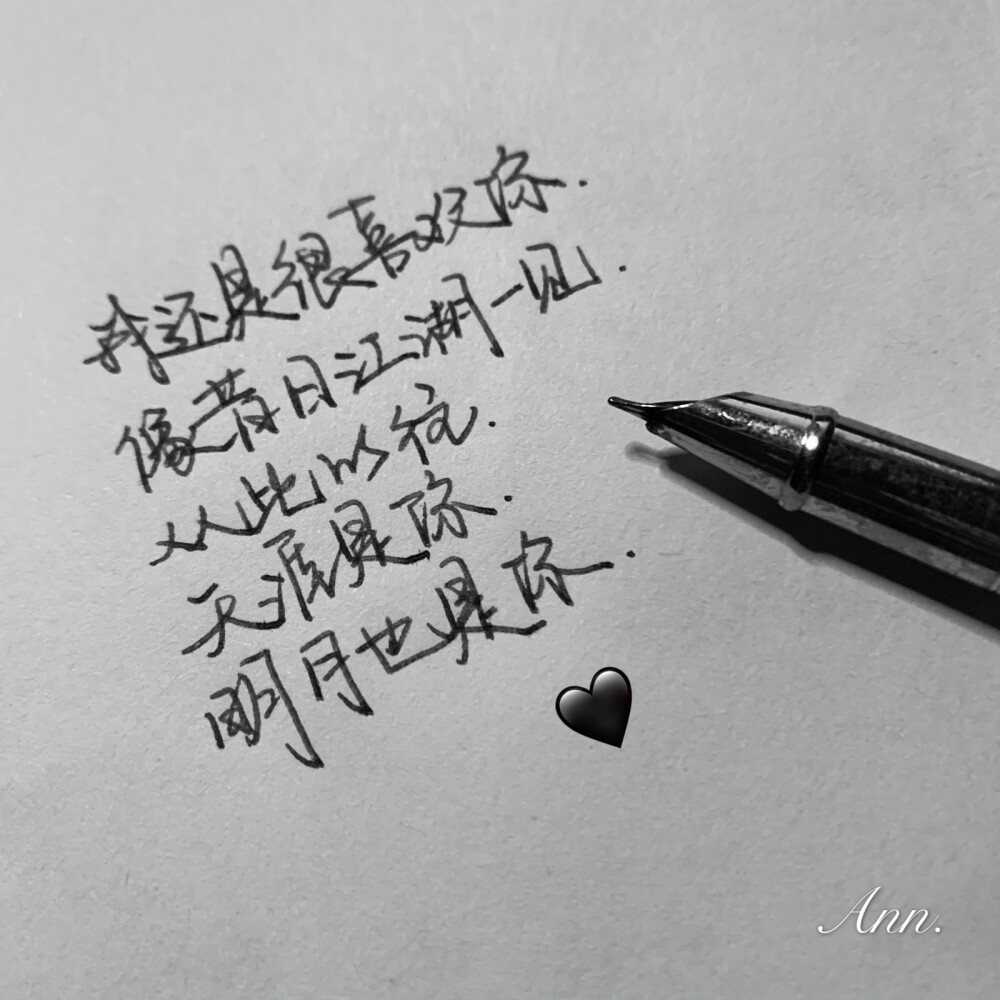 我还是很喜欢你.
像昔日江湖一见.
从此以往.
天涯是你.
明月也是你.
Ann.